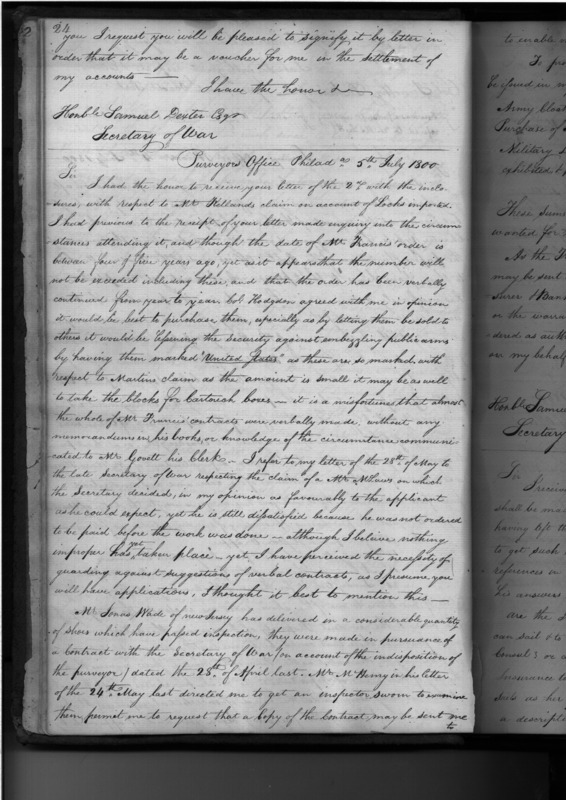 24
you I request you will be pleased to signify it by letter in
order that it may be a voucher for me in the settlement of
my accounts —
I have the honor &
Honble Samuel Dexter Esqr
Secretary of War
Surveyors Office Philada 5th July 1800
Sir
I had the honor to receive your letter of the 2d with the inclo-
sures, with respect to Mr Ketlands claim on account of Locks imported.
I had previous to the receipt of your letter made enquiry into the circum
stances attending it, and though the date of Mr. Francis' order is
between four & five years ago, yet as it appears that the number will
not be exceeded including these, and that the order has been verbally
continued from year to year, Col Hodgdon agreed with me in opinion
it would be best to purchase them, especially as by letting them be sold to
others it would be lessening the security against embezzling public arms
by having them marked "United States" as these are so marked, with
respect to Martins claim as the amount is small it may be as well
to take the blocks for Cartouch boxes — it is a misfortune that almost
the whole of Mr Francis' contracts were verbally made, without any
memorandums in his books, or knowledge of the circumstance communi
cated to Mr Govett his Clerk — I refer to my letter of the 28th of May to
the late Secretary of War respecting the claim of a Mr on which
the Secretary decided, in my opinion as favourably to the applicant
as he could expect, yet he is still dissatisfied because he was not ordered
to be paid before the work was done — although I believe nothing
improper has yet taken place — yet I have perceived the necessity of
guarding against suggestions of verbal contracts, as I presume you
will have applications, I thought it best to mention this —
Mr Jonas Wade of new Jersey has delivered in a considerable quantity
of shoes which have passed inspection, they were made in pursuance of
a Contract with the Secretary of War (on account of the indisposition of
the purveyor) dated the 28th of April last. Mr McHenry in his letter
of the 24th May last directed me to get an inspector sworn to examine
them permit me to request that a Copy of the Contract may be sent me
to
to enable
To pro
be found in
Army
Purchase of
Military
exhibited
These sums
wanted for
As the
may be sent
surer
or the warra
dered as
on my behalf
Honble Samuel
Secretary
Sir
I receive
shall be ma
having left
to get such
references in
his answers
are the
can suit
Consul
Insurance
as her
a descripti